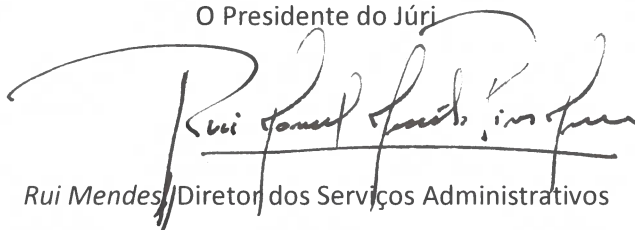 O Presidente do Júri
Rui
Rui Mendes, Diretor dos Serviços Administrativos